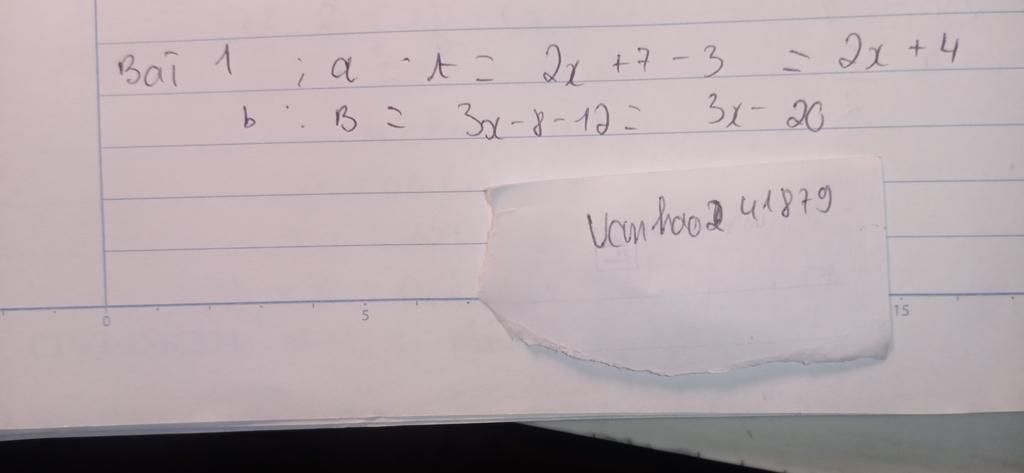 Bài 1 ; a . A = 2x + 7 - 3 = 2x + 4
b : B = 3x - 8 - 12 = 3x - 20
Vanhao2 41879
0 5 15